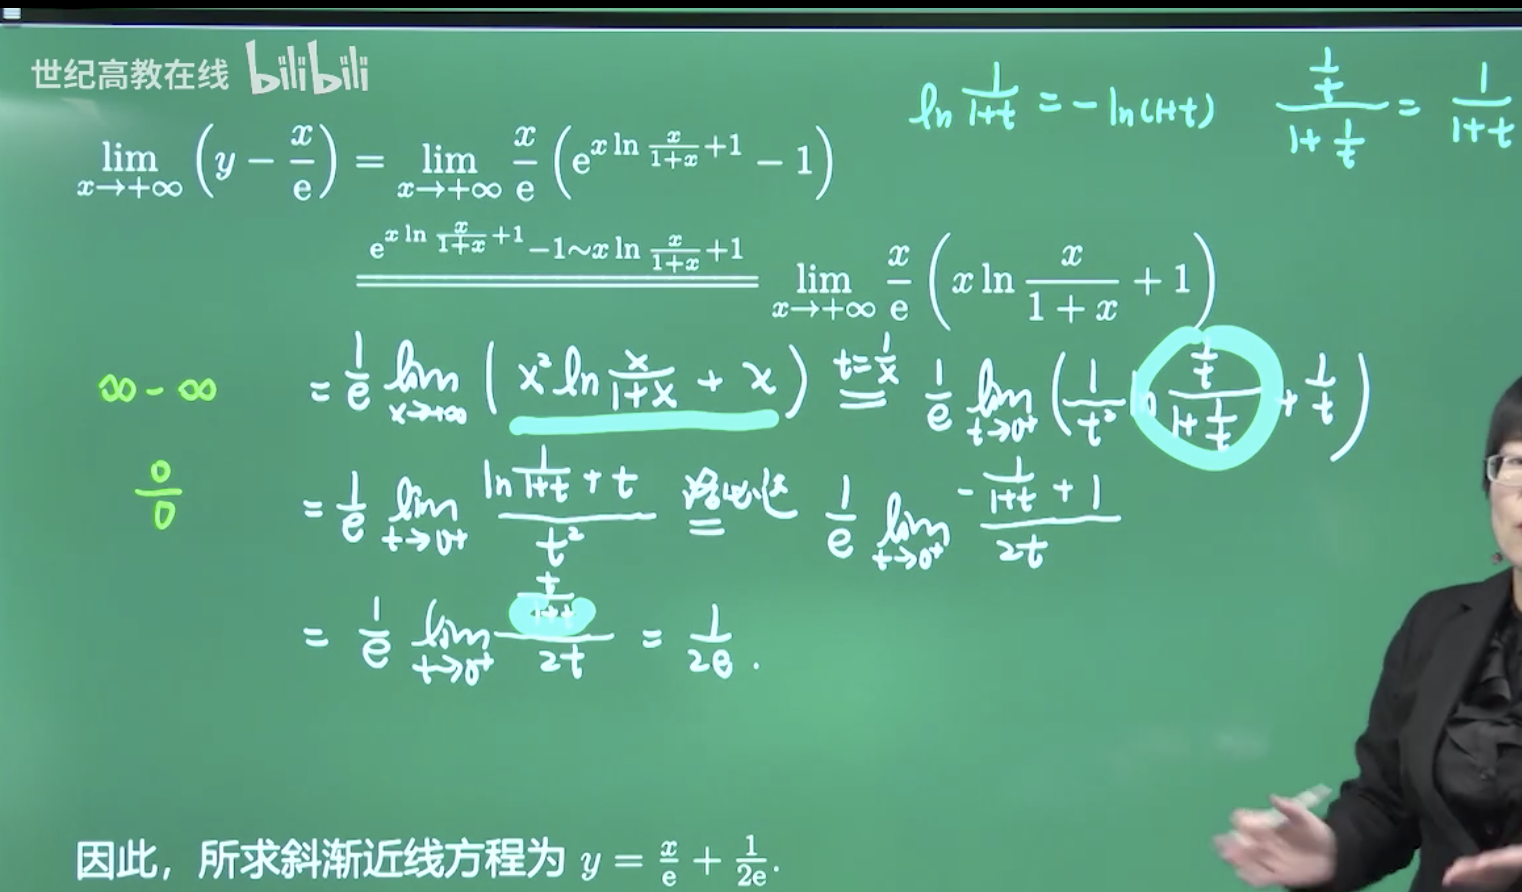 世纪高教在线 bilibili
ln 1/(1+t) = - ln(1+t)    (1/t)/(1+1/t) = 1/(1+t)
lim_{x→+∞} (y - x/e) = lim_{x→+∞} x/e (e^{x ln x/(1+x) +1} - 1)
e^{x ln x/(1+x) +1} -1 ~ x ln x/(1+x) +1    lim_{x→+∞} x/e (x ln x/(1+x) + 1)
∞ - ∞    = 1/e lim_{x→+∞} (x² ln x/(1+x) + x)  t=1/x =  1/e lim_{t→0⁺} (1/t² ln (1/t)/(1+1/t) + 1/t)
0/0    = 1/e lim_{t→0⁺} (ln 1/(1+t) + t)/t²  洛必达 =  1/e lim_{t→0⁺} (-1/(1+t) + 1)/2t
= 1/e lim_{t→0⁺} (t/(1+t))/2t = 1/2e .
因此，所求斜渐近线方程为 y = x/e + 1/2e.